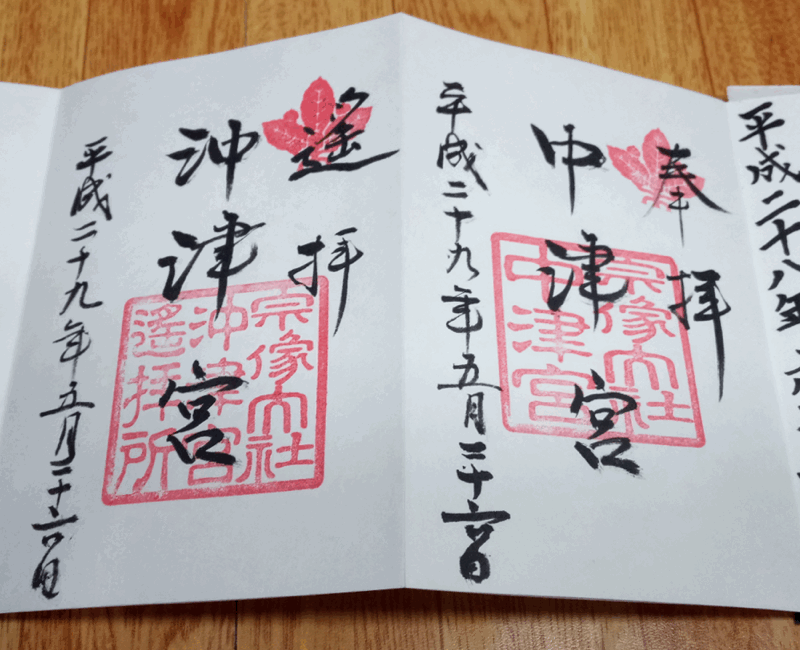 平成二十八年六
奉拝
宗像大社
中津宮
中津宮
平成二十九年五月二十六日
遥拝
宗像大社
沖津宮
遥拝所
沖津宮
平成二十九年五月二十六日